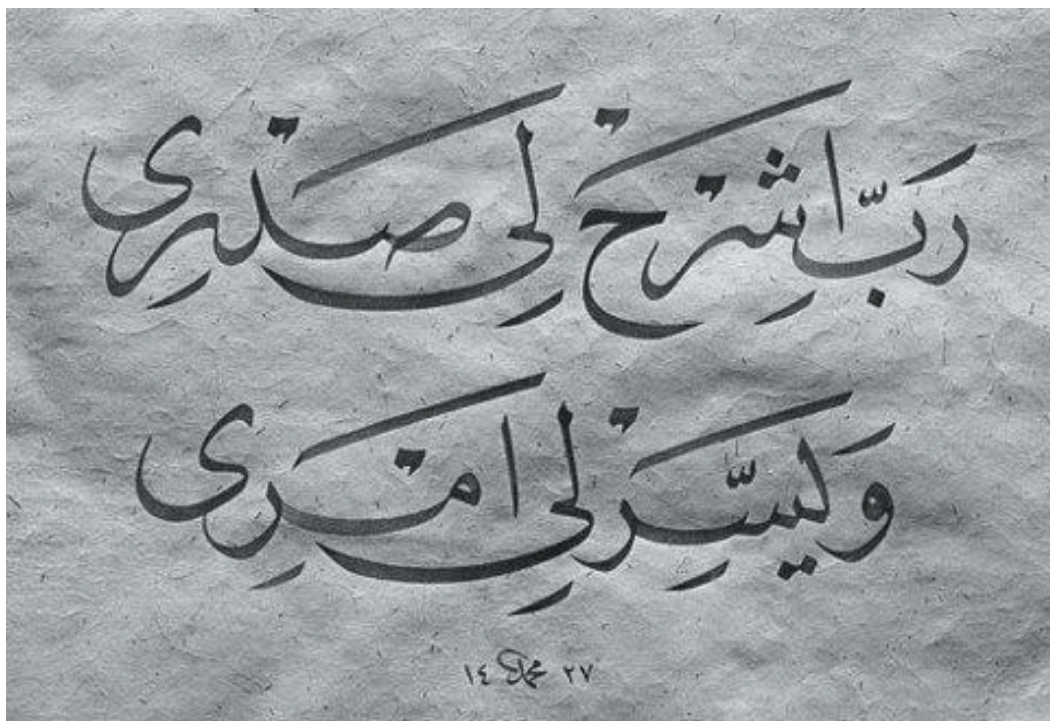 رَبِّ اشْرَحْ لِي صَدْرِي
وَيَسِّرْ لِي اَمْرِي
١٤ محمد ٢٧